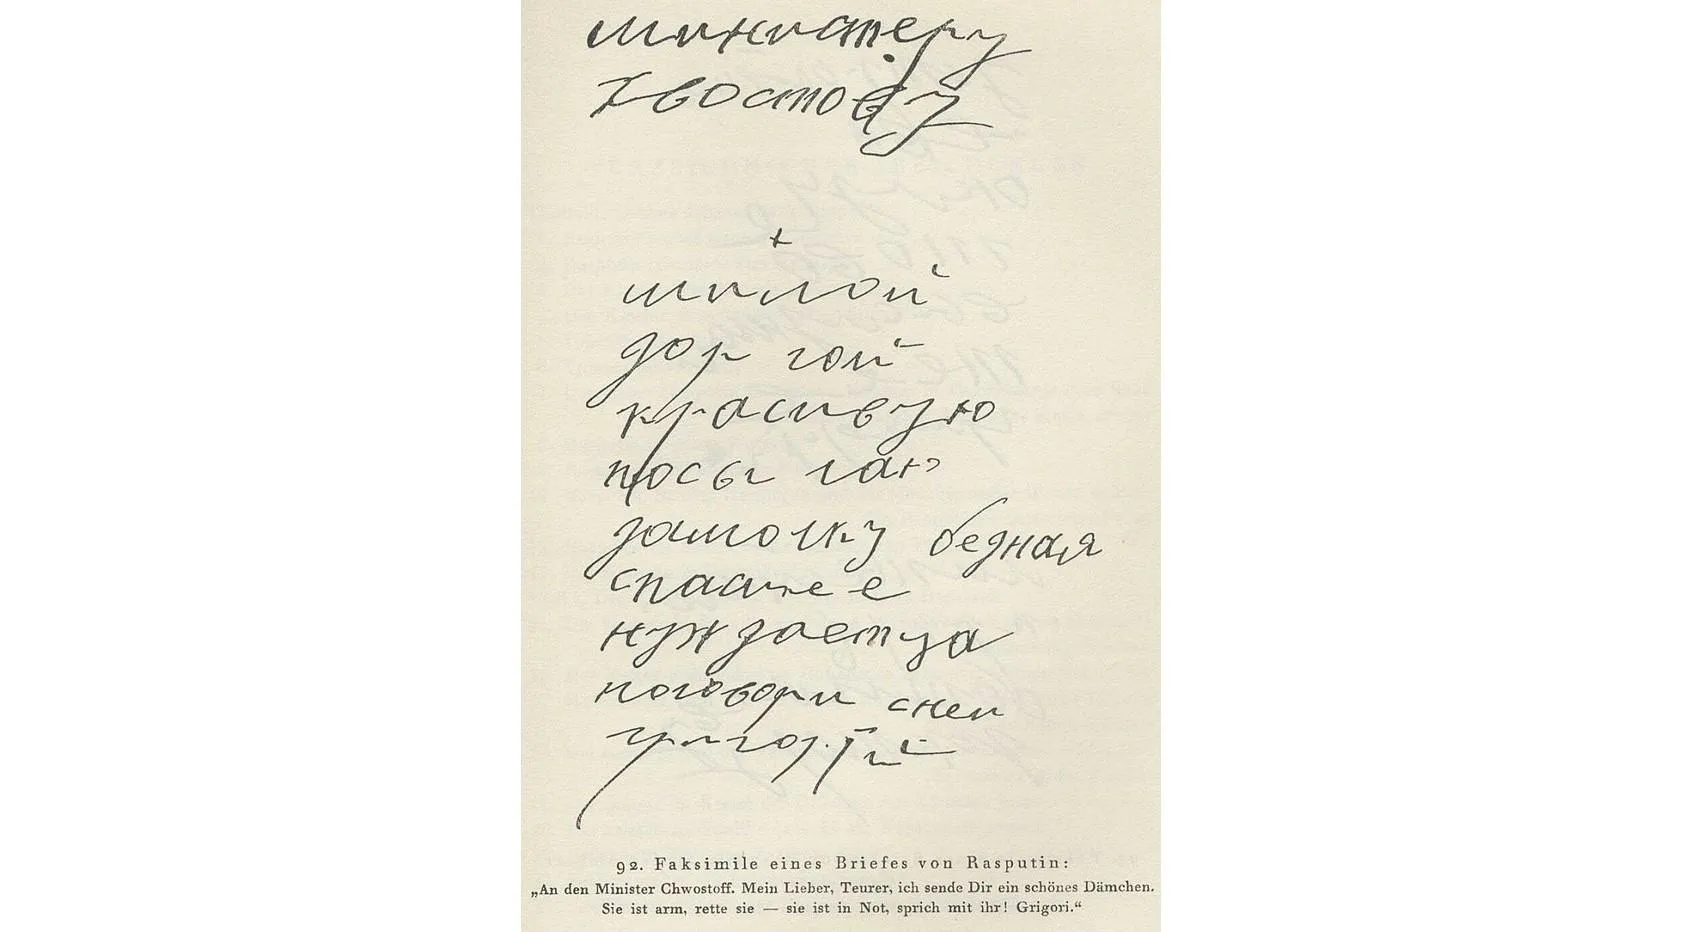 министеру
Хвостову
+
милой
дор гой
красивую
посы лаю
дамочку бедная
спаси ее
нуждаетца
поговори сней
92. Faksimile eines Briefes von Rasputin:
„An den Minister Chwostoff. Mein Lieber, Teurer, ich sende Dir ein schönes Dämchen.
Sie ist arm, rette sie — sie ist in Not, sprich mit ihr! Grigori.“